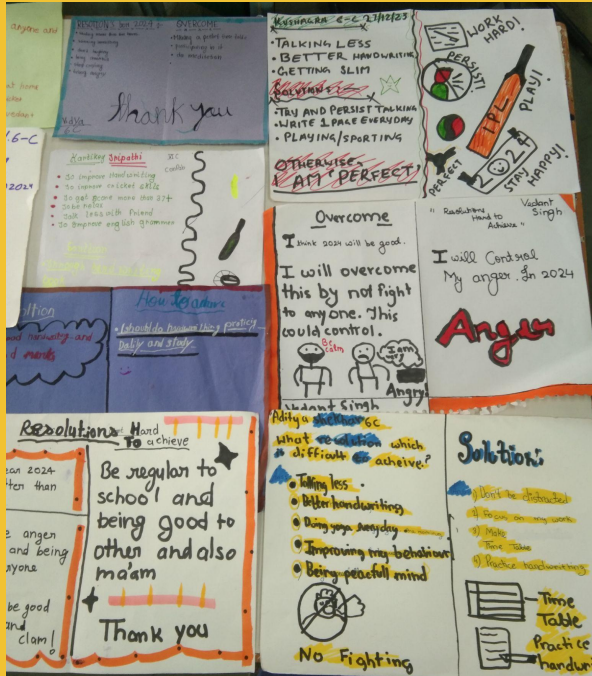 anyone and
at home
6-C
2024
RESOLUTIONS
OVERCOME
do meditation
Thank you
Vidya
6C
KUSHAGRA 6-C 27/12/23
• TALKING LESS
• BETTER HANDWRITING
• GETTING SLIM
SOLUTIONS
• TRY AND PERSIST TALKING
WRITE 1 PAGE EVERYDAY
• PLAYING/SPORTING
OTHERWISE,
I AM 'PERFECT!'
WORK HARD!
PERSIST!
IPL
PLAY!
PERFECT
2024
STAY HAPPY!
Kartikey Tripathi
• To improve handwriting
• To improve cricket skills
• To get score more than 37+
• Talk less with friend
• To improve english grammer
How to achieve
• I should do handwriting practice
Daily and study.
and
marks
Overcome
I think 2024 will be good.
I will overcome
this by not fight
to anyone. This
could control.
Be calm
I am
Angry
Vedant Singh
"Resolutions
Hard to
Achieve"
Vedant
Singh
I will Control
My anger. In 2024
Anger
Resolutions Hard
To achieve
ear 2024
ter than
e anger
and being
ryone
be good
and
clam!
Be regular to
school and
being good to
other and also
ma'am
Thank you
Aditya shekhar 6C
What resolution which
is difficult to acheive?
• Talking less.
• Better handwriting
• Doing yoga everyday
• Improving my behaviour
• Being peacefull mind
No Fighting
Solution:
1) Don't be distracted
2) Focus on my work
3) Make
Time Table
4) Practice handwriting
Time
Table
Practice
handwri